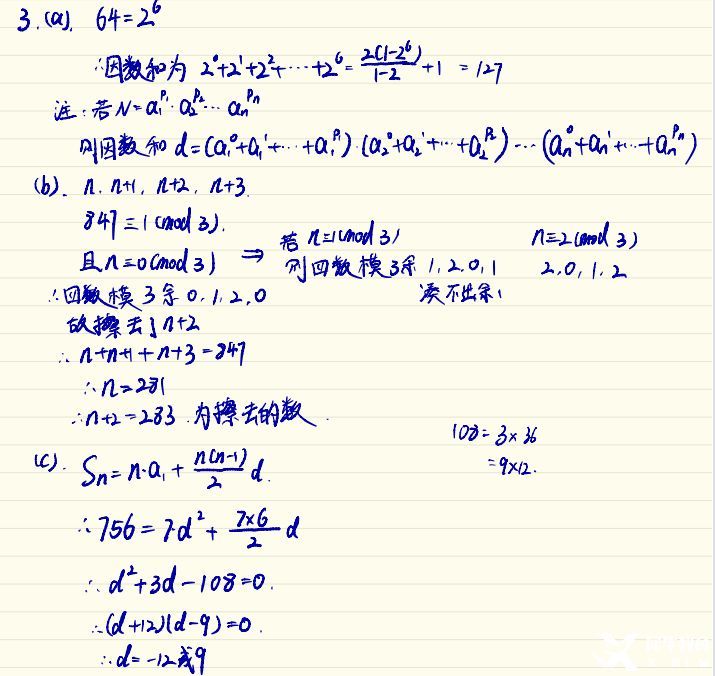 3.(a). 64=2^6
∴因数和为 2^0+2^1+2^2+⋯+2^6=\frac{2(1-2^6)}{1-2}+1 =127
注:若N=a_1^{p_1}·a_2^{p_2}⋯a_n^{p_n}
则因数和 d=(a_1^0+a_1^1+⋯+a_1^{p_1})·(a_2^0+a_2^1+⋯+a_2^{p_2})⋯(a_n^0+a_n^1+⋯+a_n^{p_n})
(b). n, n+1, n+2, n+3.
847≡1(mod 3).
且n≡0(mod 3) ⇒ 若 n≡1(mod 3) n≡2(mod 3)
则四数模3余 1,2,0,1 2,0,1,2
∴四数模3余 0,1,2,0 凑不出余1
故擦去了n+2
∴ n+n+1+n+3=847
∴n=281
∴n+2=283 为擦去的数.
108=3×36
=9×12.
(c). S_n=n·a_1+\frac{n(n-1)}{2}d.
∴756=7·d^2+\frac{7×6}{2}d
∴d^2+3d-108=0.
∴(d+12)(d-9)=0.
∴d=-12或9